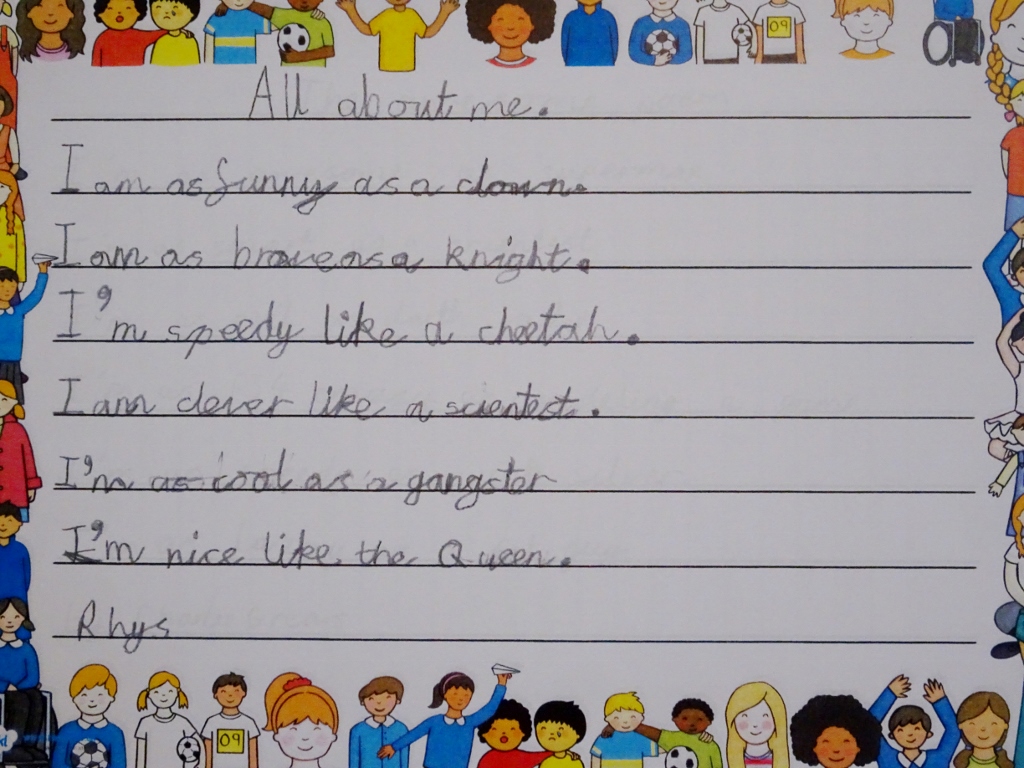 All about me.
I am as funny as a clown.
I am as brave as a knight.
I'm speedy like a cheetah.
I am clever like a scientest.
I'm as cool as a gangster
I'm nice like the Queen.
Rhys
09
09